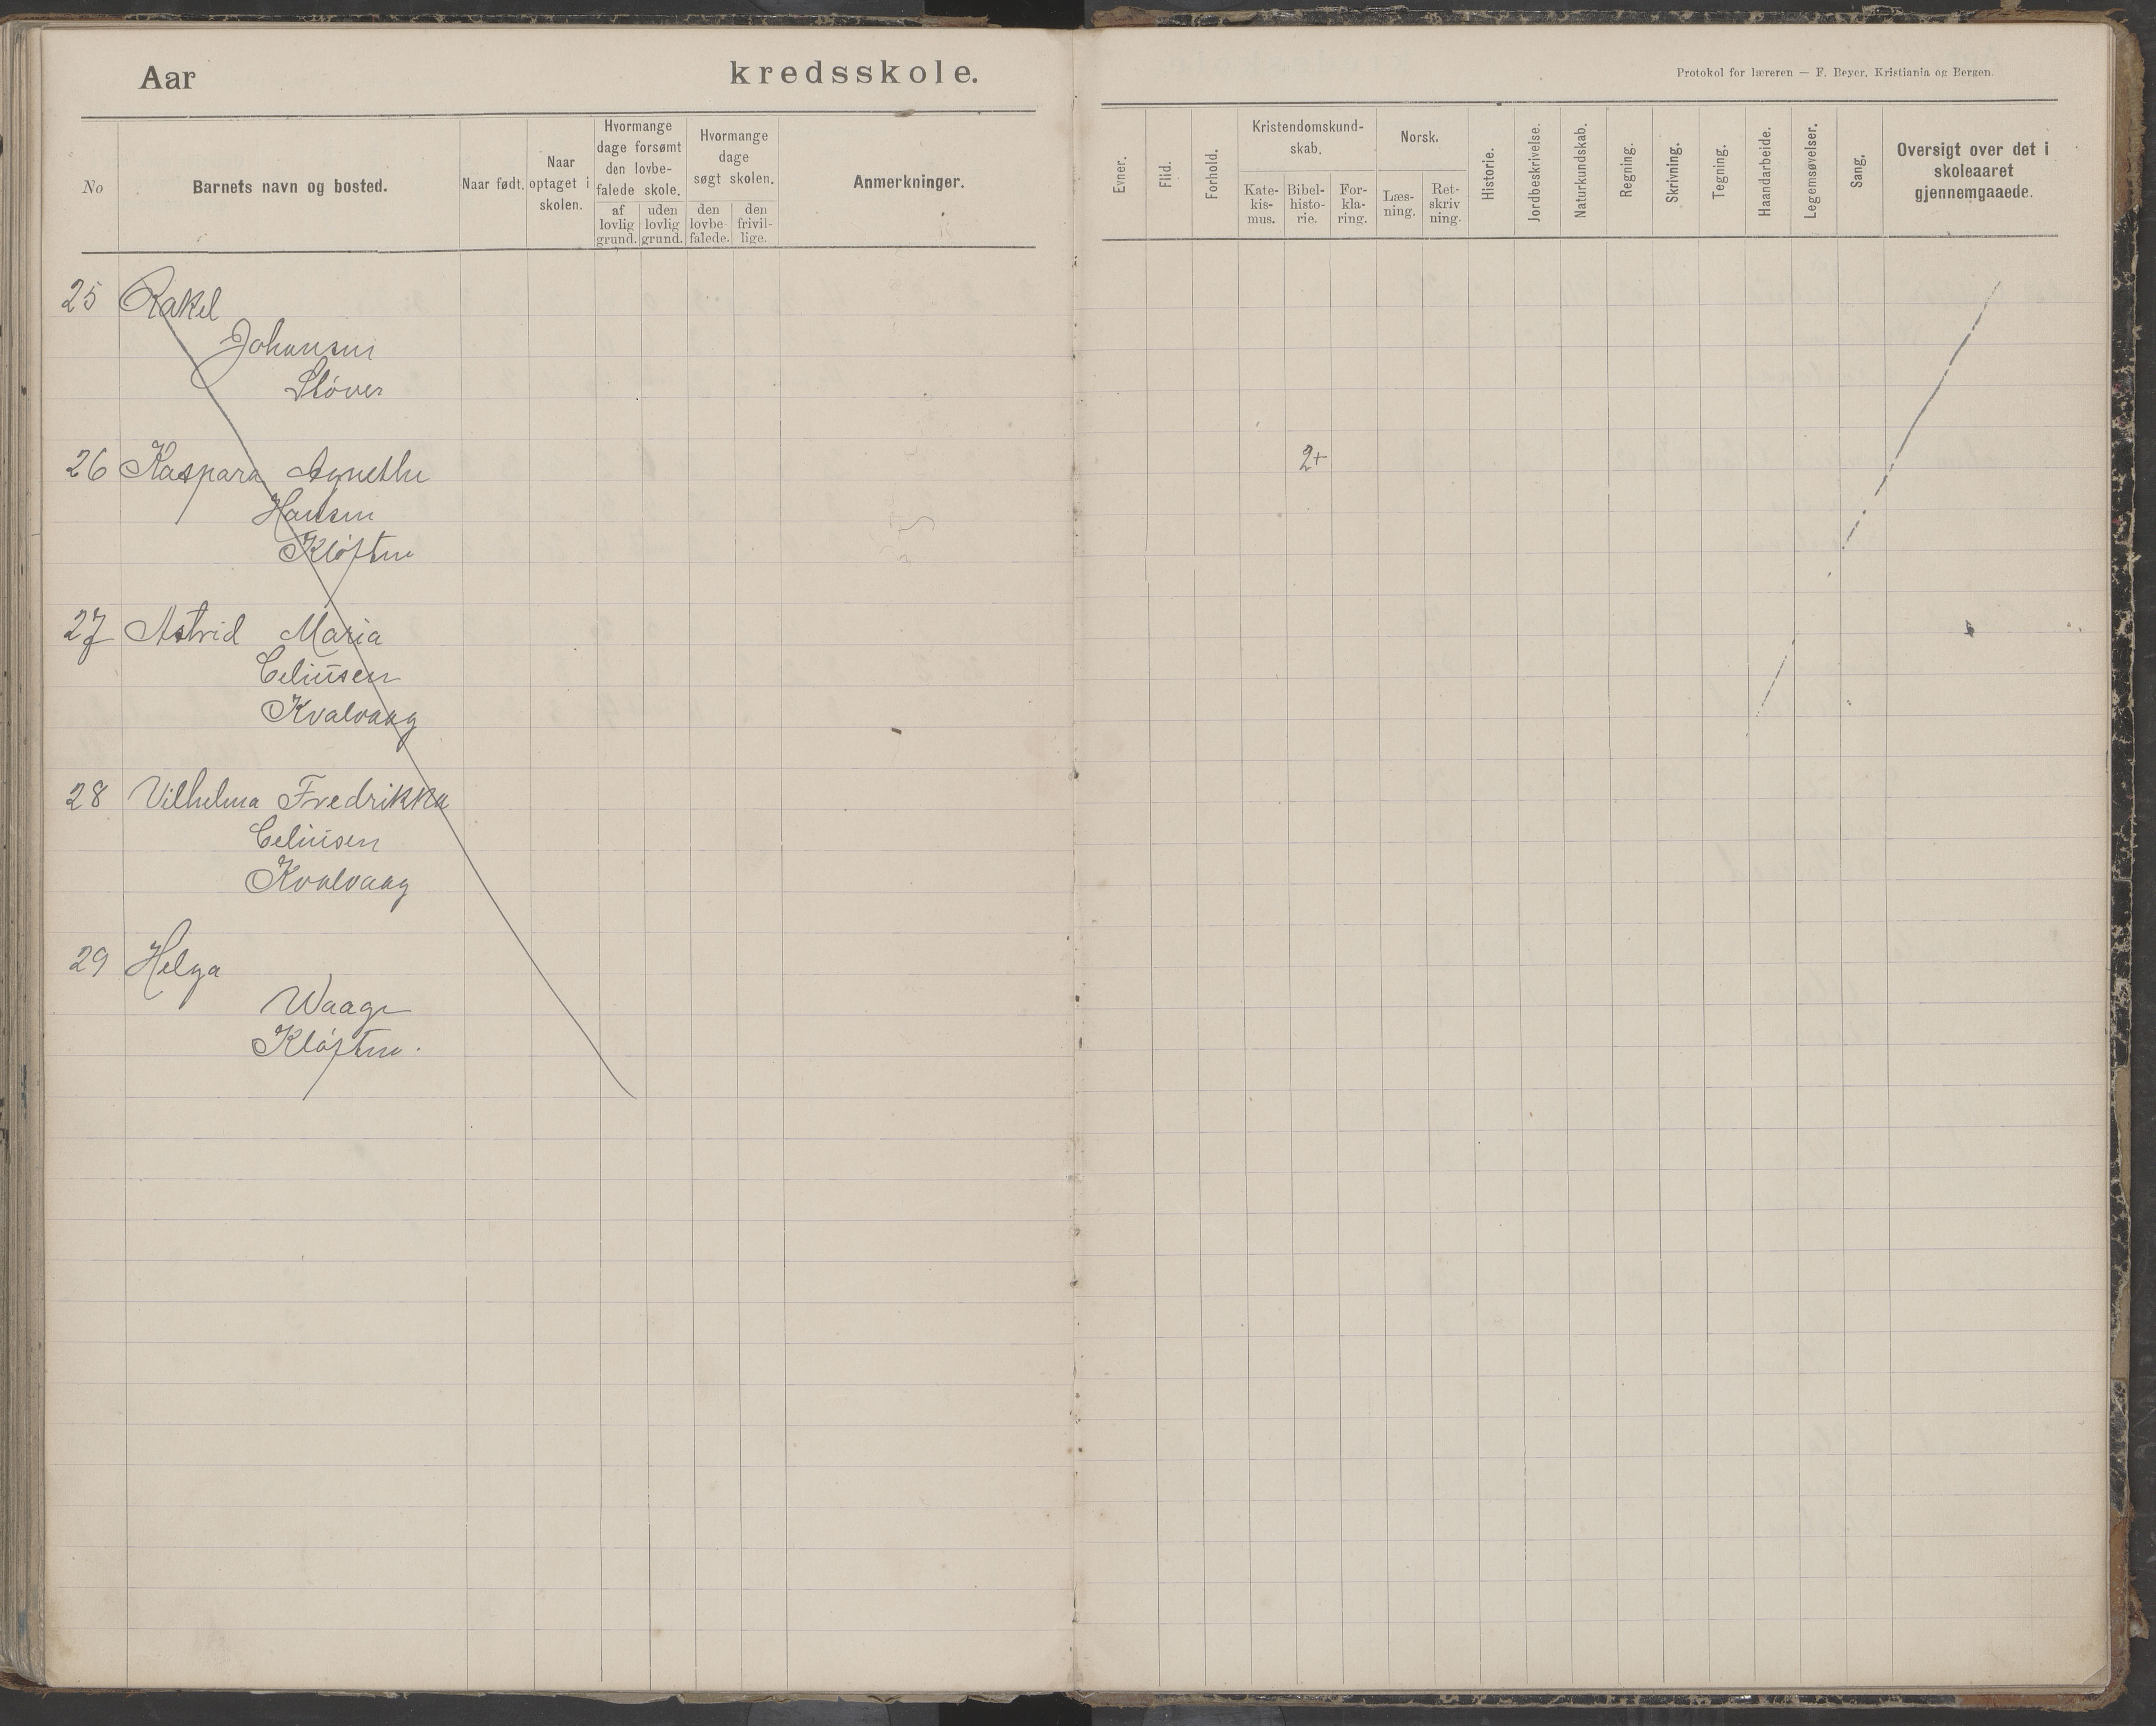 Aar
kredsskole.
No
Barnets navn og bosted.
Naar født.
Naar
optaget i
skolen.
Hvormange
dage forsømt
den lovbe-
falede skole.
af
lovlig
grund.
uden
lovlig
grund.
Hvormange
dage
søgt skolen.
den
lovbe
falede.
den
frivil-
lige.
Anmerkninger.
25 Rakel
Johansen
Støver
26 Kaspara Agnethe
Hansen
Kløften
27 Astrid Maria
Celiusen
Kvalvaag
28 Vilhelma Fredrikka
Celiusen
Kvalvaag
29 Helga
Waage
Kløften.
Protokol for læreren — F. Beyer, Kristiania og Bergen.
Evner.
Flid.
Forhold.
Kristendomskund-
skab.
Kate-
kis-
mus.
Bibel-
histo-
rie.
For-
kla-
ring.
Norsk.
Læs-
ning.
Ret-
skriv
ning.
Historie.
Jordbeskrivelse.
Naturkundskab.
Regning.
Skrivning.
Tegning.
Haandarbeide.
Legemsøvelser.
Sang.
Oversigt over det i
skoleaaret
gjennemgaaede.
2+